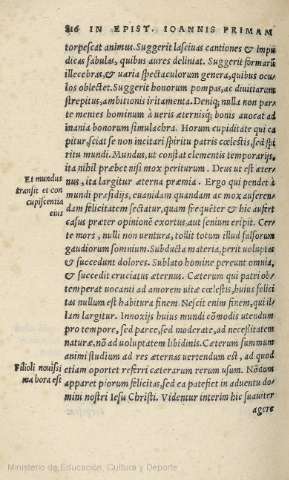 816 IN EPIST. IOANNIS PRIMAM
torpescat animus. Suggerit lasciuas cantiones & impu
dicas fabulas, quibus aures deliniat. Suggerit formarũ
illecebras, & uaria spectaculorum genera, quibus ocu
los oblectet. Suggerit honorum pompas, ac diuitiarum
strepitus, ambitionis iritamenta. Deniq; nulla non par
te mentes hominum à ueris æternisq; bonis auocat ad
inania bonorum simulachra. Horum cupiditate qui ca
pitur, sciat se non incitari spiritu patris cœlestis, sed spi
ritu mundi. Mundus, ut constat elementis temporarijs,
Et mundus
transit et con
cupiscentia
eius
ita nihil præbet nisi mox periturum. Deus ut est æter-
nus, ita largitur æterna præmia. Ergo qui pendet à
mundi præsidijs, euanidam quandam ac mox auferen-
dam felicitatem sectatur, quam frequẽter & hic aufert
casus præter opinionẽ exortus, aut senium eripit. Cer-
te mors, nulli non uentura, tollit totum illud falsorum
gaudiorum somnium. Subducta materia, perit uoluptas
& succedunt dolores. Sublato homine pereunt omnia,
& succedit cruciatus æternus. Cæterum qui patri ob-
temperat uocanti ad amorem uitæ cœlestis, huius felici
tas nullum est habitura finem. Nescit enim finem, qui il-
lam largitur. Innoxijs huius mundi cõmodis utendum
pro tempore, sed parce, sed moderate, ad necessitatem
naturæ, nõ ad uoluptatem libidinis. Cæterum summum
animi studium ad res æternas uertendum est, ad quod
Filioli nouissi
ma hora est
etiam oportet referri cæterarum rerum usum. Nõdum
apparet piorum felicitas, sed ea patefiet in aduentu do-
mini nostri Iesu Christi. Videntur interim hic suauiter
agere
Ministerio de Educación, Cultura y Deporte